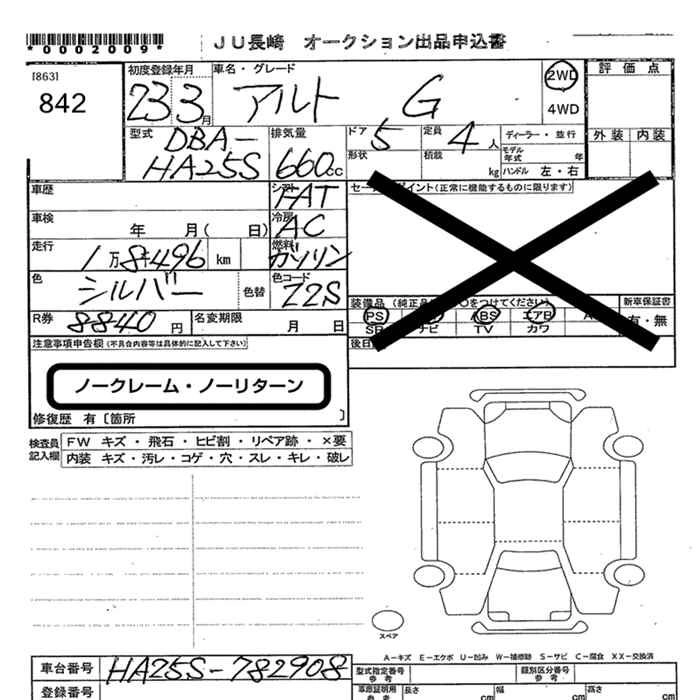 *0002009*
JU長崎 オークション出品申込書
[863]
842
初度登録年月
23 3月
車名・グレード
アルト G
2WD
4WD
評価点
外装 内装
型式
DBA-
HA25S
排気量
660cc
ドア 5
形状
定員 4人
積載 kg
ディーラー・並行
モデル年式 年
ハンドル 左・右
車歴
シフト FAT
セールスポイント(正常に機能するものに限ります)
車検 年 月( 日)
冷房 AC
走行 1万8千496 km
燃料 ガソリン
色 シルバー 色替
色コード Z2S
装備品(純正品に○をつけてください)
新車保証書
有・無
PS ABS エアB
SR ナビ TV カワ
R券 8840円
名変期限 月 日
後日
注意事項申告欄(不具合内容等は具体的に記入して下さい)
ノークレーム・ノーリターン
修復歴 有〔箇所 〕
検査員記入欄
FW キズ・飛石・ヒビ割・リペア跡・×要
内装 キズ・汚レ・コゲ・穴・スレ・キレ・破レ
スペア
A−キズ E−エクボ U−凹み W−補修跡 S−サビ C−腐食 XX−交換済
車台番号 HA25S-782908
型式指定番号 参考
類別区分番号 参考
登録番号
車庫証明用 参考
長さ cm
幅 cm
高さ cm